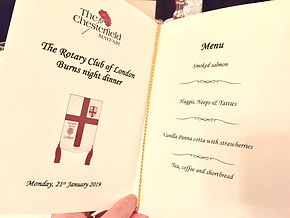 The
Chesterfield
MAYFAIR
The Rotary Club of London
Burns night dinner
ROTARY
Monday, 21st January 2019
Menu
Smoked salmon
Haggis, Neeps & Tatties
Vanilla Panna cotta with strawberries
Tea, coffee and shortbread